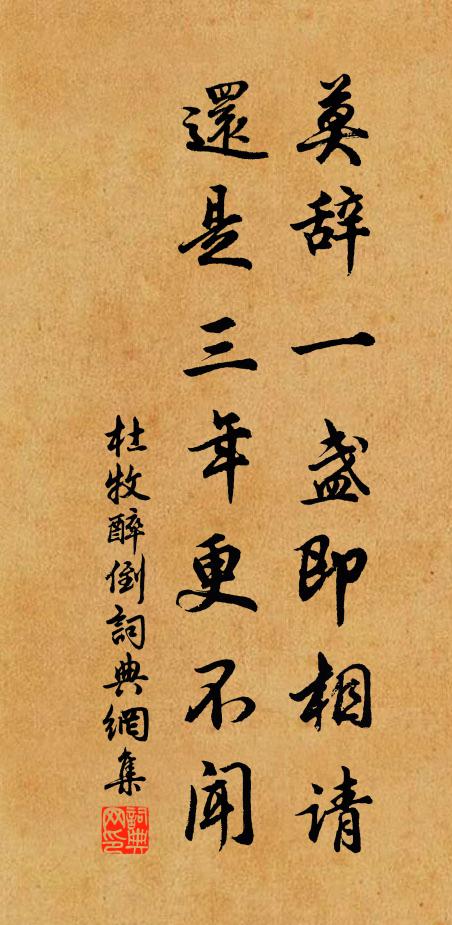 莫辞一盏即相请
還是三年更不闻
杜牧醉倒詞典網集
詞典
网印